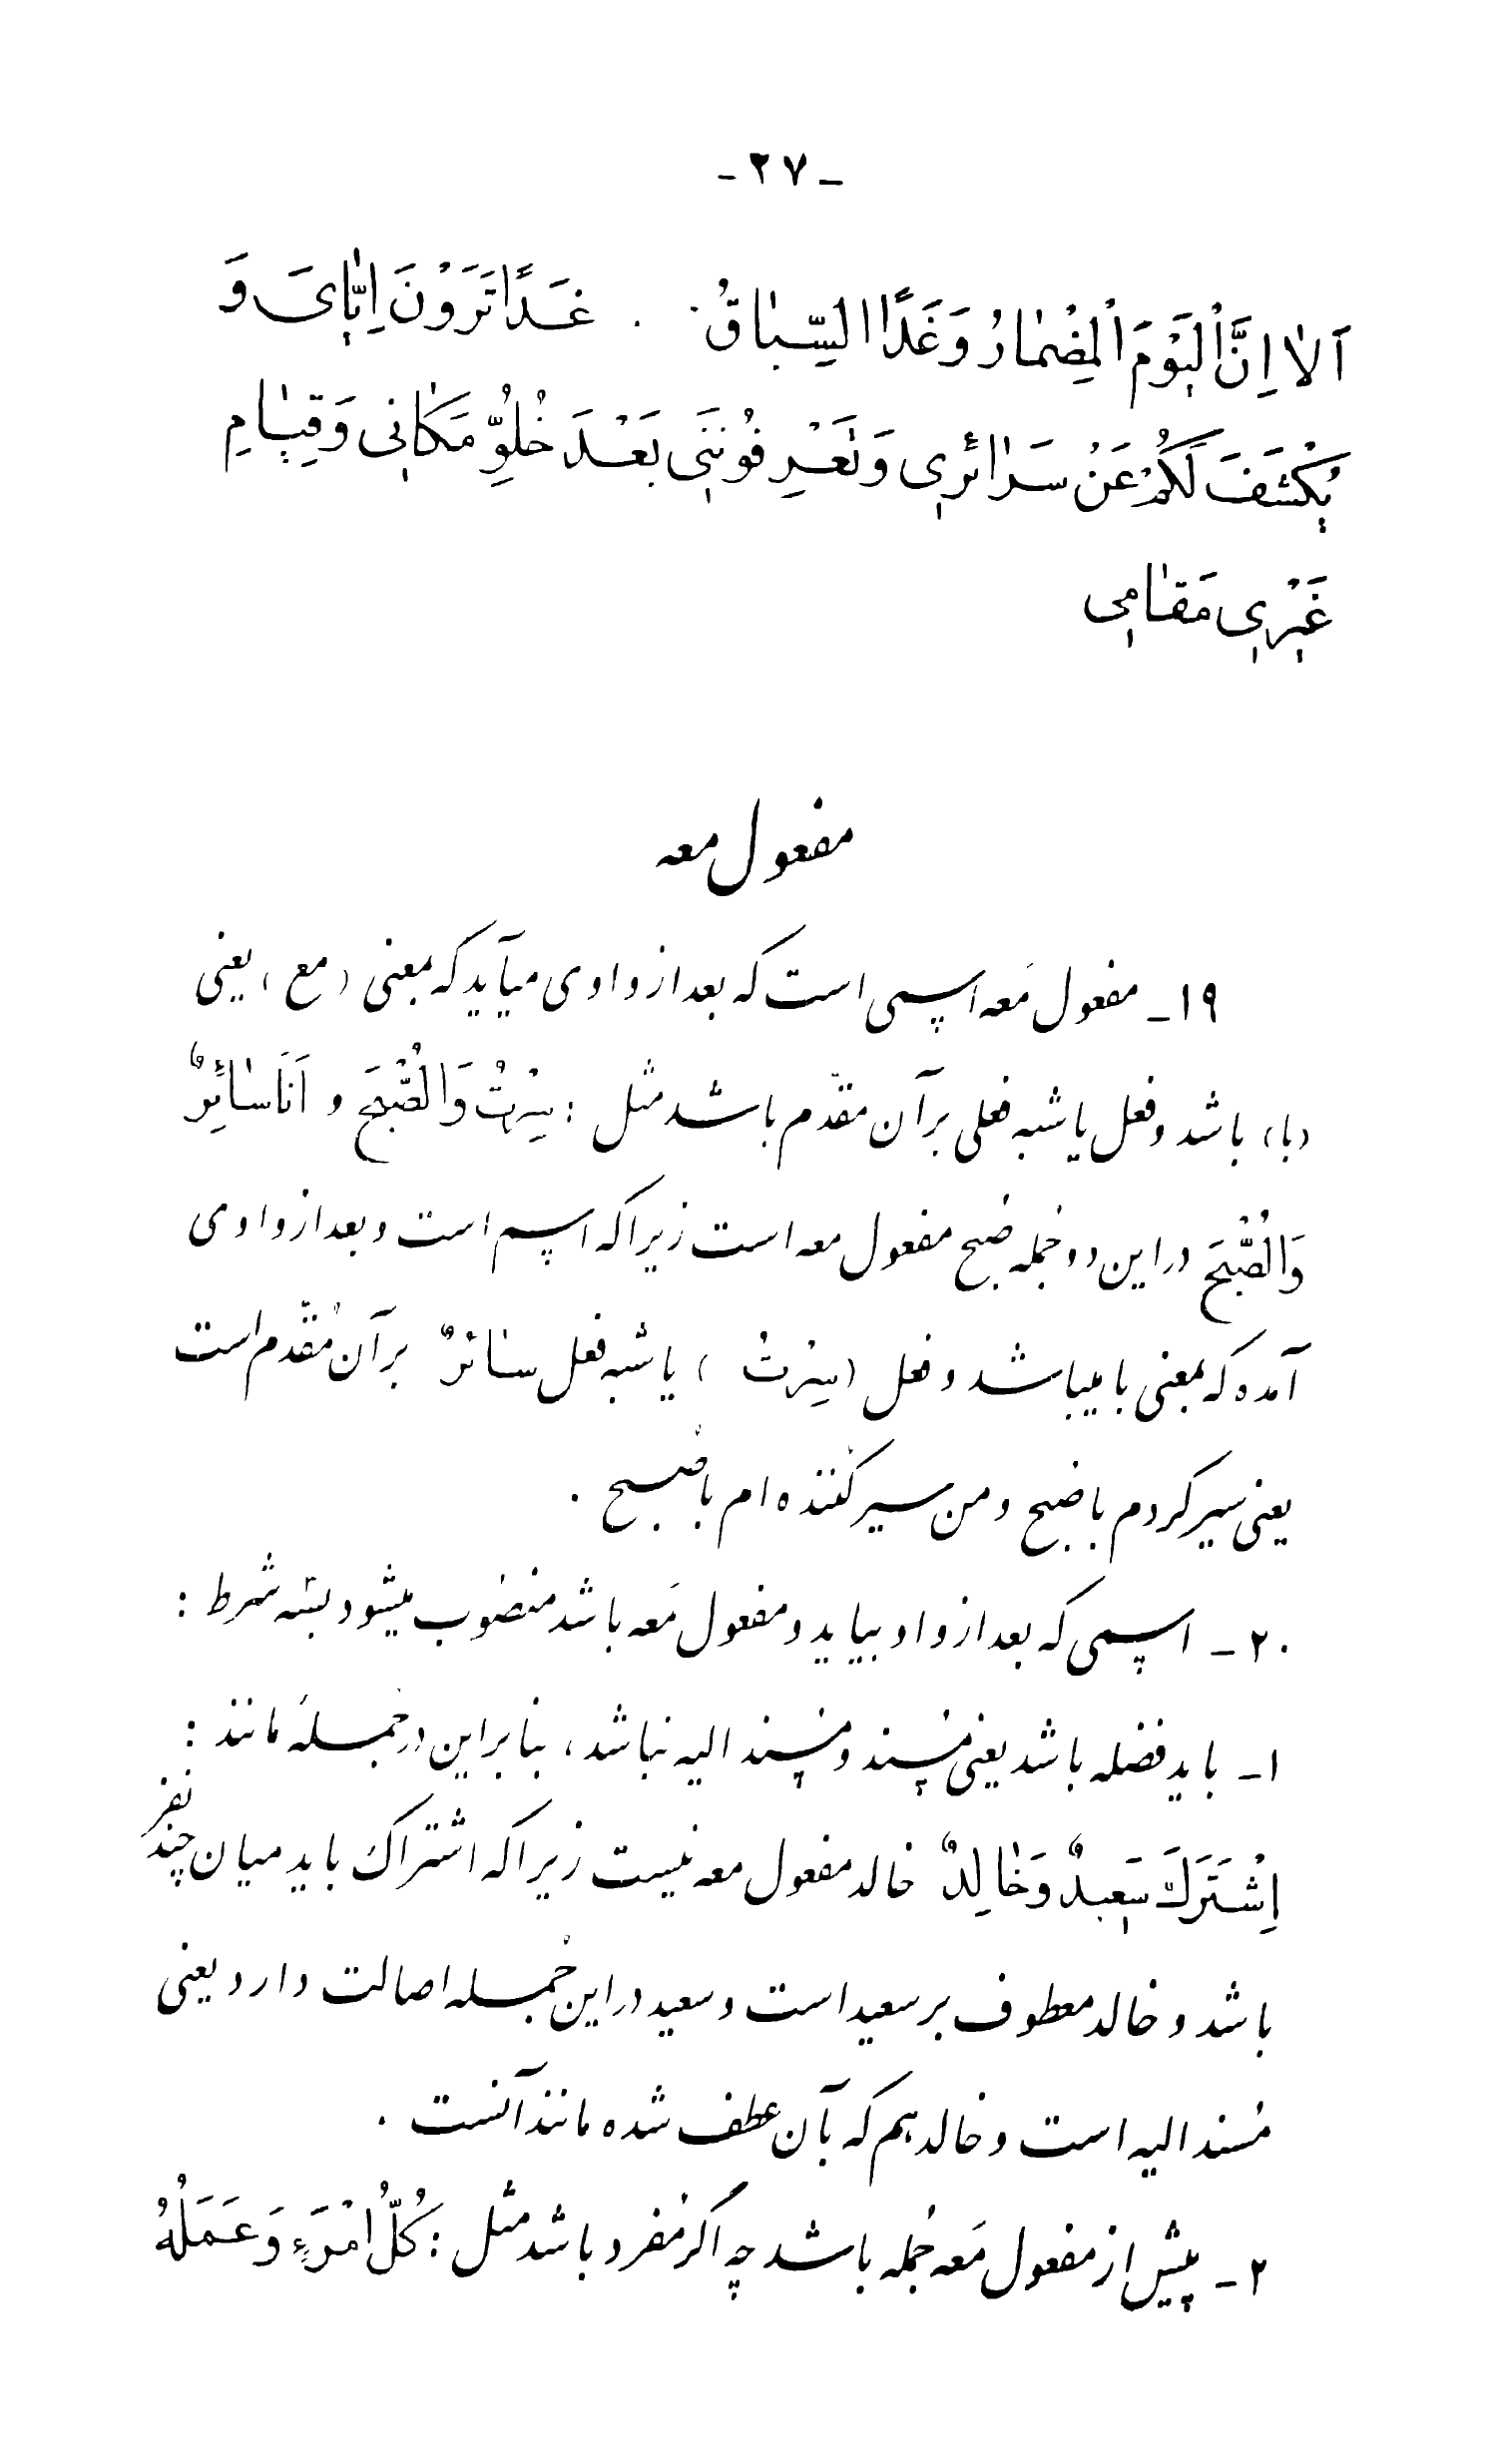 - ۲۷ -
اَلاٰ اِنَّ الْیَوْمَ الْمِضْمٰارُ وَ غَدًا السِّبٰاقُ . غَدًا تَرَوْنَ اِیّٰایَ وَ
یُکْشَفَ لَکُمْ عَنْ سَرٰائِری وَ تَعْرِفُونَنی بَعْدَ خُلُوِّ مَکٰانی وَ قِیٰامِ
غَیْری مَقٰامی
مفعول معه
۱۹- مفعول مَعه اسمی است که بعد از واوی میآید که بمعنی (مع) یعنی
(با) باشد و فعل یا شبه فعلی بر آن مقدّم باشد مثل : سِرْتُ وَ الْصُّبْحَ و اَنَا سٰائِرٌ
وَ الْصُّبْحَ در این دو جُمله صُبح مفعول معه است زیرا که اسم است و بعد از واوی
آمده که بمعنی با میباشد و فعل (سِرْتُ ) یا شبه فعل سٰائرٌ بر آن مُقدّم است
یعنی سیر کردم با صُبح و من سیر کُننده ام با صُبح .
۲۰- اسمی که بعد از واو بیاید و مفعول مَعه باشد منصُوب میشود بسه شرط :
۱- باید فضله باشد یعنی مُسند و مُسند الیه نباشد ، بنابر این در جُملهٔ مانند :
اِشْتَرَکَ سَعیدٌ وَ خٰالِدٌ خالد مفعول معه نیست زیرا که اشتراک باید میان چند نفر
باشد و خالد معطوف بر سعید است و سعید در این جُمله اصالت دارد یعنی
مُسند الیه است و خالد هم که بآن عطف شده مانند آنست .
۲- پیش از مفعول مَعه جُمله باشد چه اگر مُفرد باشد مثل : کُلُّ امْرَءٍ وَ عَمَلُهُ